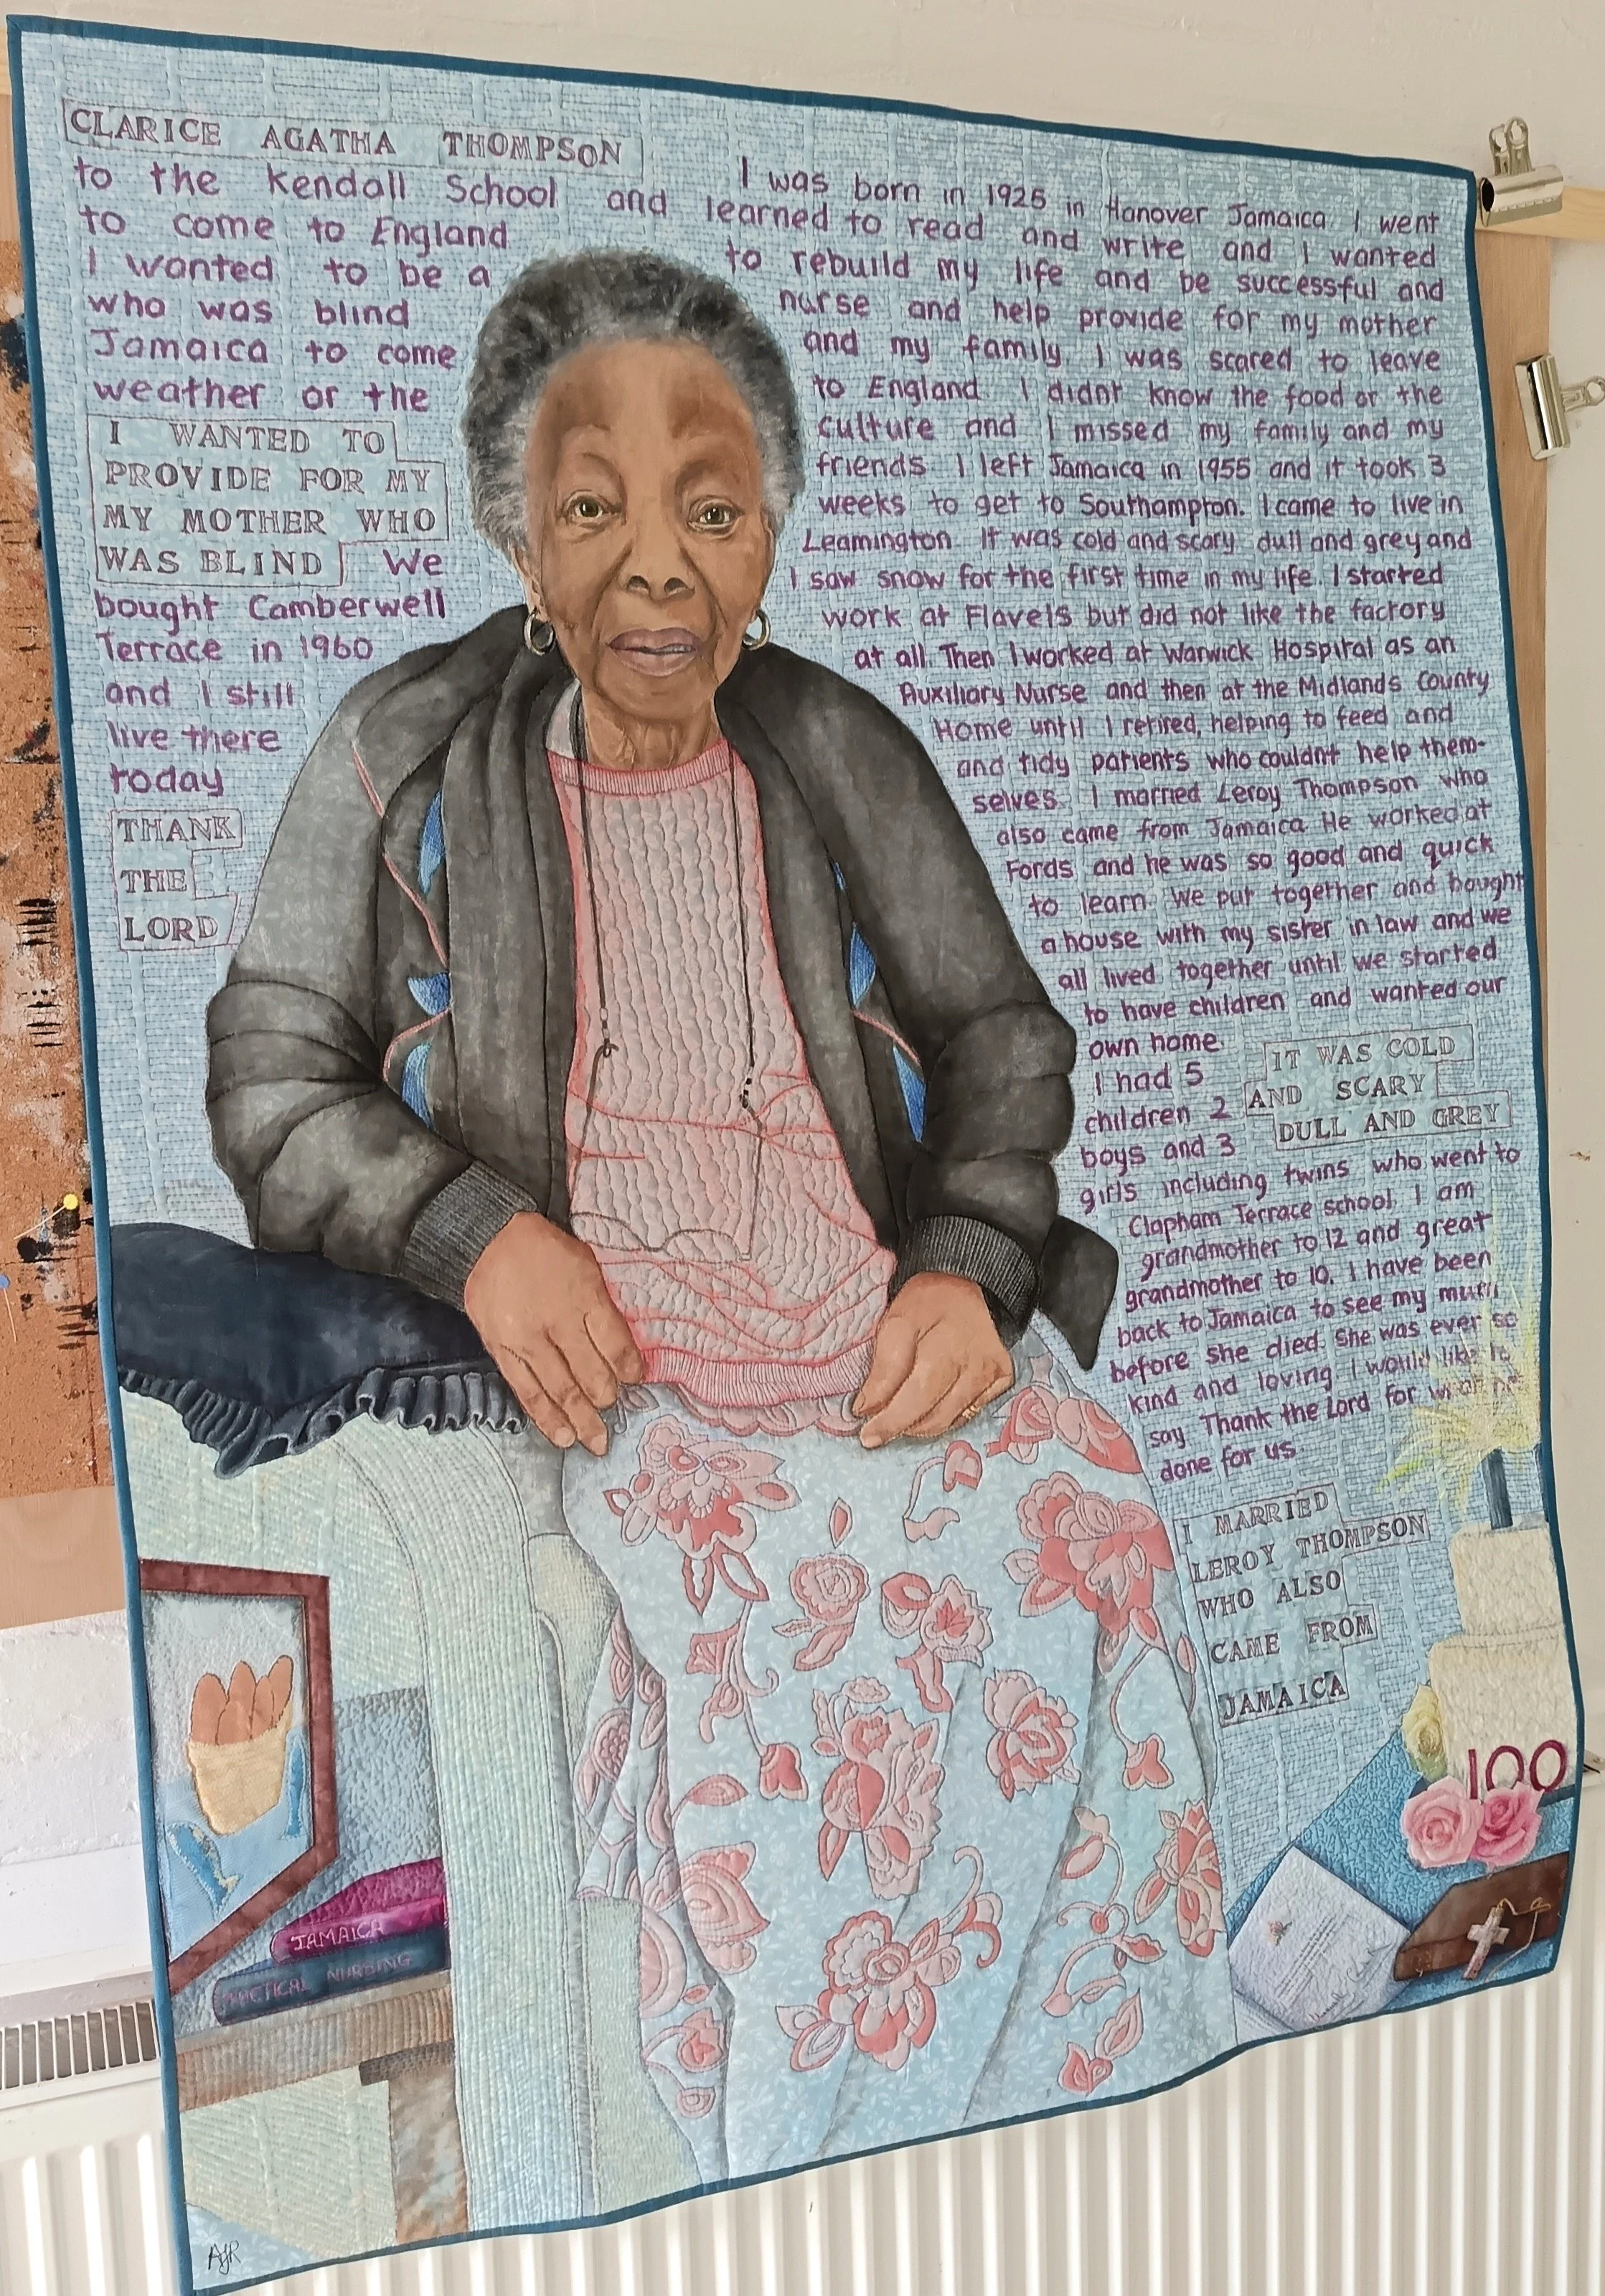 CLARICE AGATHA THOMPSON I was born in 1925 in Hanover Jamaica. I went
to the Kendall School and learned to read and write and I wanted
to come to England to rebuild my life and be successful and
I wanted to be a nurse and help provide for my mother
who was blind and my family. I was scared to leave
Jamaica to come to England I didnt know the food or the
weather or the culture and I missed my family and my
friends I left Jamaica in 1955 and it took 3
weeks to get to Southampton. I came to live in
Leamington It was cold and scary dull and grey and
I saw snow for the first time in my life. I started
work at Flavels but did not like the factory
at all. Then I worked at Warwick Hospital as an
Auxiliary Nurse and then at the Midlands County
Home until I retired, helping to feed and
and tidy patients who couldnt help them-
selves. I married Leroy Thompson who
also came from Jamaica. He worked at
Fords and he was so good and quick
to learn. We put together and bought
a house with my sister in law and we
all lived together until we started
to have children and wanted our
own home.
I WANTED TO
PROVIDE FOR MY
MY MOTHER WHO
WAS BLIND We
bought Camberwell
Terrace in 1960
and I still
live there
today
THANK
THE
LORD
I had 5
children 2
boys and 3
IT WAS COLD
AND SCARY
DULL AND GREY
girls including twins who went to
Clapham Terrace school. I am
grandmother to 12 and great
grandmother to 10. I have been
back to Jamaica to see my mum
before she died. She was ever so
kind and loving I would like to
say Thank the Lord for what he
done for us.
I MARRIED
LEROY THOMPSON
WHO ALSO
CAME FROM
JAMAICA
100
JAMAICA
PRACTICAL NURSING
AJR